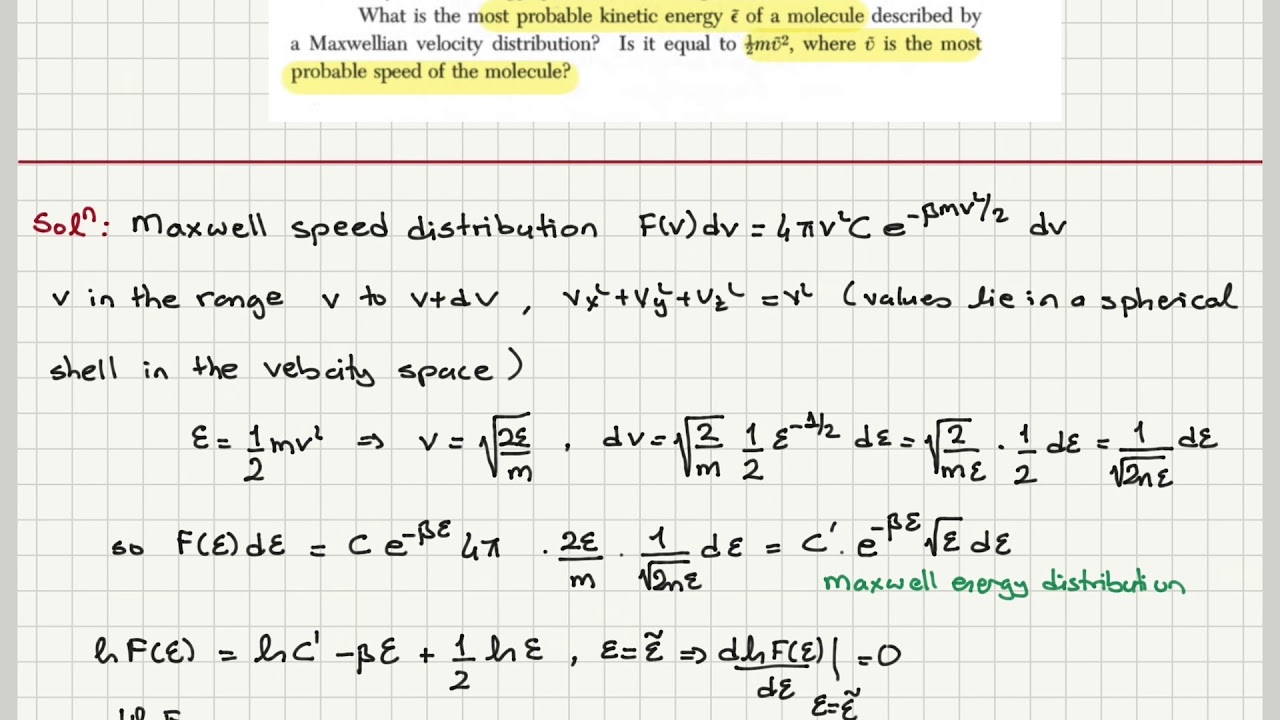 What is the most probable kinetic energy ε̃ of a molecule described by
a Maxwellian velocity distribution? Is it equal to ½mṽ², where ṽ is the most
probable speed of the molecule?
Solⁿ: Maxwell speed distribution F(v)dv = 4πv²C e^(-βmv²/2) dv
v in the range v to v+dv , vx²+vy²+vz² = v² (values lie in a spherical
shell in the velocity space)
ε = 1/2 mv² ⇒ v = √(2ε/m) , dv = √(2/m) 1/2 ε^(-1/2) dε = √(2/mε) · 1/2 dε = 1/√(2mε) dε
so F(ε)dε = C e^(-βε) 4π · 2ε/m · 1/√(2mε) dε = C' · e^(-βε) √ε dε
maxwell energy distribution
ln F(ε) = ln C' - βε + 1/2 ln ε , ε = ε̃ ⇒ d ln F(ε)/dε | ε=ε̃ = 0